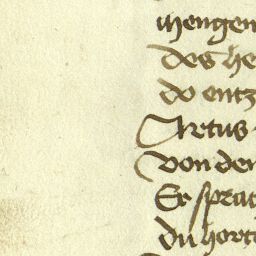 mengen
des he
do entz
Artus
von den
Er sprac
du hort